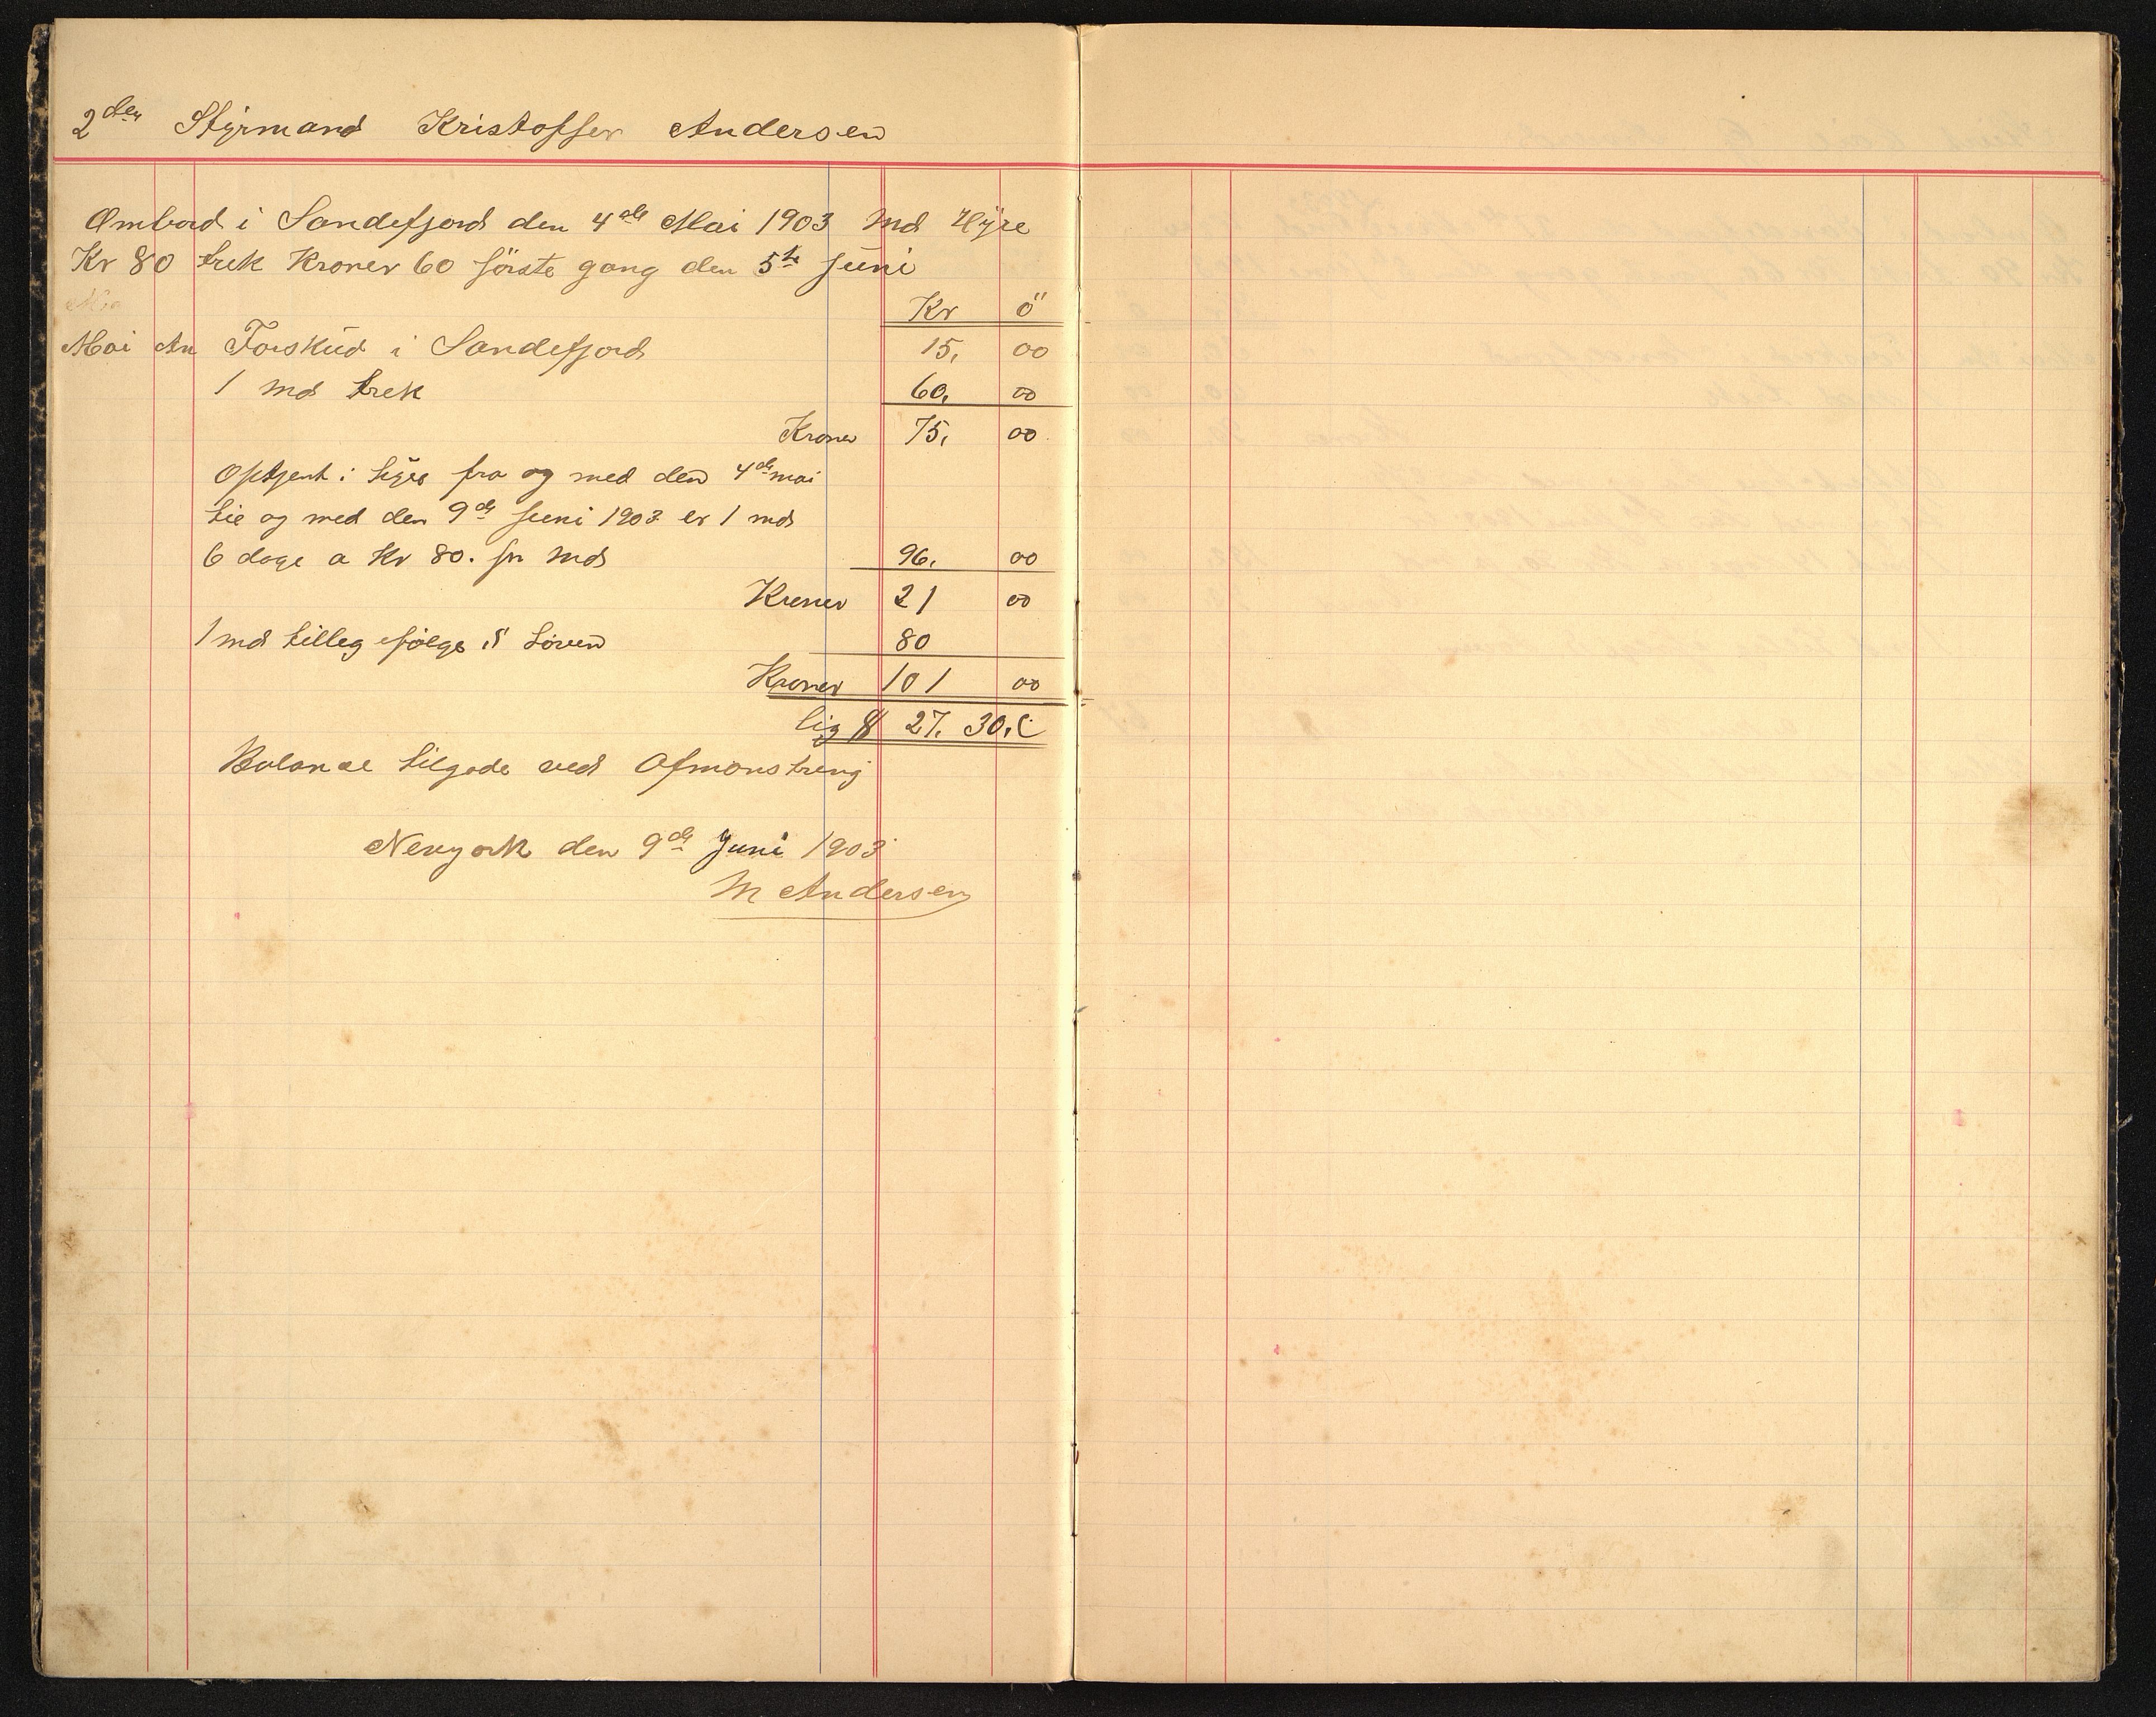 2den Styrmand Kristoffer Andersen
Ombord i Sandefjord den 4de Mai 1903 Md Hÿre
Kr 80 trek Kroner 60 förste gang den 5te Juni
Kr ö
Mai An Forskud i Sandefjord 15, 00
1 md trek 60, 00
Kroner 75, 00
Optjent i hÿre fra og med den 4de mai
til og med den 9de Juni 1903 er 1 md
6 dage a Kr 80. pr Md 96, 00
Kroner 21 00
1 md tilleg ifölge Loven 80
Kroner 101 00
lig $ 27. 30, C
Balanse tilgode ved Afmönstring
Newyork den 9de Juni 1903
M Andersen